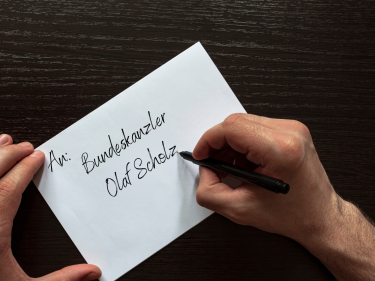 An: Bundeskanzler
Olaf Scholz